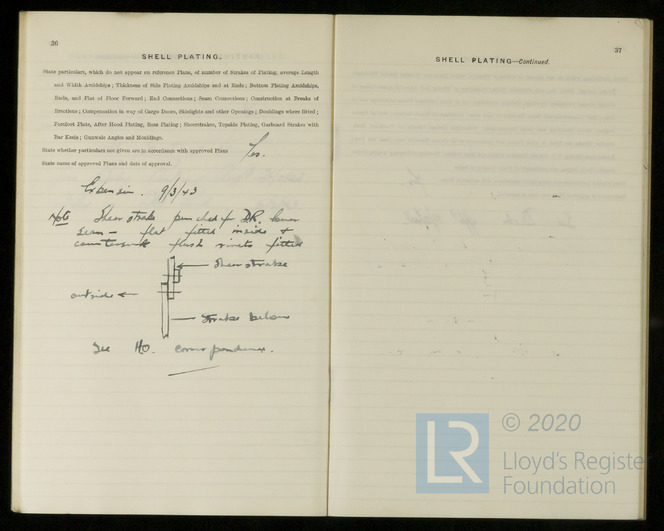 36
SHELL PLATING.
State particulars, which do not appear on reference Plans, of number of Strakes of Plating, average Length
and Width Amidships; Thickness of Side Plating Amidships and at Ends; Bottom Plating Amidships,
Ends, and Flat of Floor Forward; End Connections; Seam Connections; Construction at Breaks of
Erections; Compensation in way of Cargo Doors, Sidelights and other Openings; Doublings where fitted;
Forefoot Plate, After Hood Plating, Boss Plating; Sheerstrakes, Topside Plating, Garboard Strakes with
Bar Keels; Gunwale Angles and Mouldings.
State whether particulars not given are in accordance with approved Plans Yes.
State name of approved Plans and date of approval.
Expansion. 9/3/43
Note Sheer strake punched for D.R. lower
seam - flat fitted inside +
countersunk flush rivets fitted
Sheer strake
outside
Strake below
See HO. correspondence.
37
SHELL PLATING—Continued.
LR
© 2020
Lloyd's Register
Foundation